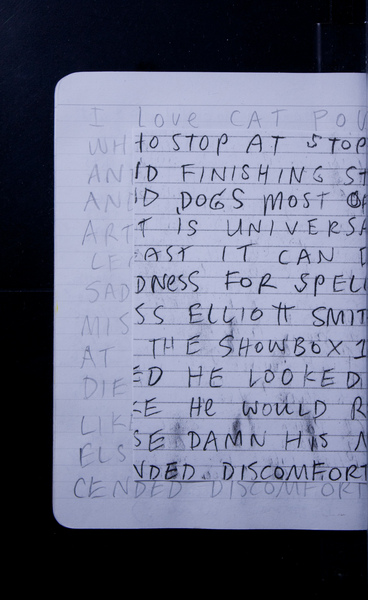 I Love CAT POU
WH TO STOP AT STOP
AND FINISHING ST
AND DOGS MOST
ART IS UNIVERSA
LEAST IT CAN
SADNESS FOR SPELL
MISS ELLIOTT SMIT
AT THE SHOWBOX 1
DIED HE LOOKED
LIKE He WOULD R
ELSE DAMN HIS
NDED DISCOMFORT
CENDED DISCOMFORT